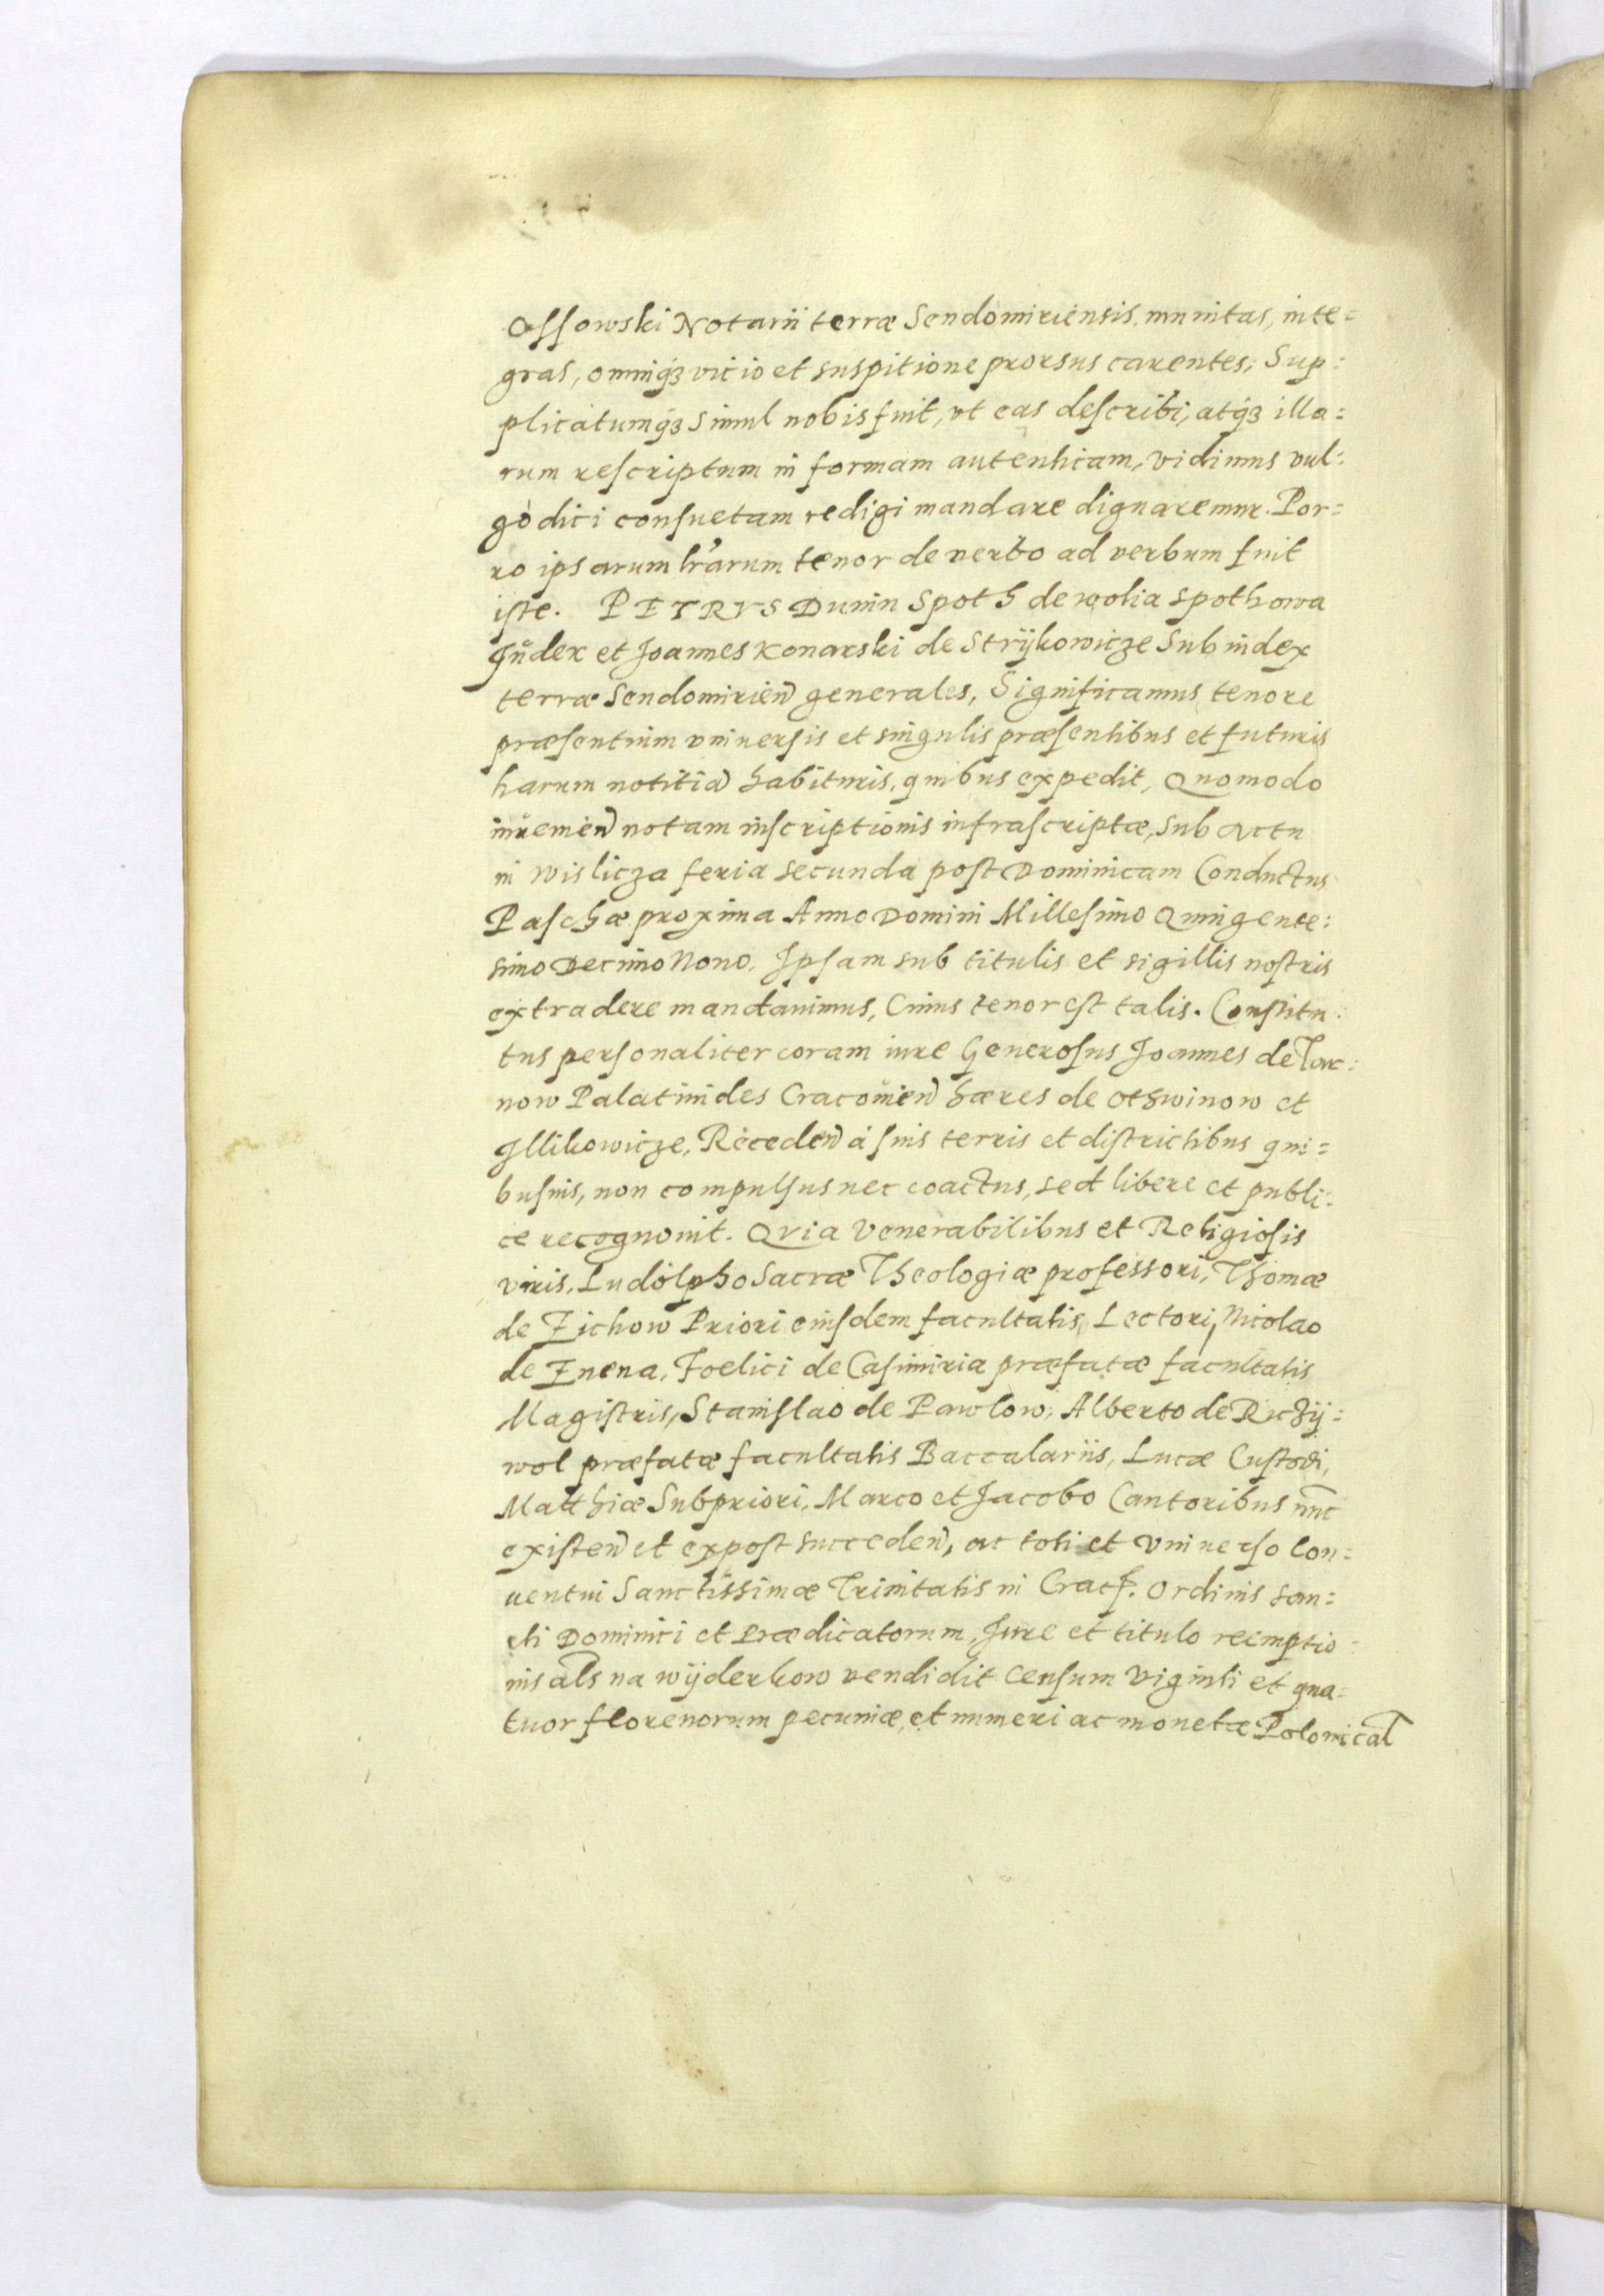 Ossowski Notarii terræ Sendomiriensis munitas, inte=
gras, omniq́ꝫ vicio et suspitione prorsus carentes, Sup=
plicatumq́ꝫ Simul nobis fuit, vt eas describi, atq́ꝫ illa=
rum rescriptum in formam autenticam, vidimus vul=
gò dici consuetam redigi mandare dignaremur. Por=
ro ipsarum lr̃arum tenor de verbo ad verbum fuit
iste. PETRVS Dunin Spoth de wolia spothowa
Iudex et Joannes Konarski de Strÿkowicze Subiudex
terræ Sendomirien̄ generales, Significamus tenore
præsentium vniuersis et singulis præsentibus et futuris
harum notitiā habituris, quibus expedit, Quomodo
inuemen̄ notam inscriptionis infrascriptæ, sub Actu
in wislicza feria secunda post Dominicam Conductus
Paschæ proxima Anno Domini Millesimo Quingente=
simo Decimo Nono, Ipsam sub titulis et sigillis nostris
extradere mandauimus, Cuius tenor est talis. Constitu=
tus personaliter coram iure Generosus Joannes de Tar=
now Palatinides Cracouien̄ hæres de Othwinow et
Illikowicze, Receden̄ à suis terris et districtibus qui=
busuis, non compulsus nec coactus, sed libere et publi=
ce recognouit. Qvia Venerabilibus et Religiosis
viris, Ludolpho Sacræ Theologiæ professori, Thomæ
de Zichow Priori eiusdem facultatis Lectori, Nicolao
de Znena, Foelici de Casimiria præfatæ facultatis
Magistris, Stanislao de Pawlow, Alberto de Riczÿ=
wol præfatæ facultatis Baccalariis, Lucæ Custodi,
Matthiæ Subpriori, Marco et Jacobo Cantoribus nūc
existen̄ et expost succeden̄, ac toti et Vniuerso Con=
uentui Sanctissimæ Trinitatis in Crac. Ordinis San=
cti Dominici et Prædicatorum, Jure et titulo reemptio=
nis als na wÿderkow vendidit Censum viginti et qua=
tuor florenorum pecuniæ, et numeri ac monetæ Polonical